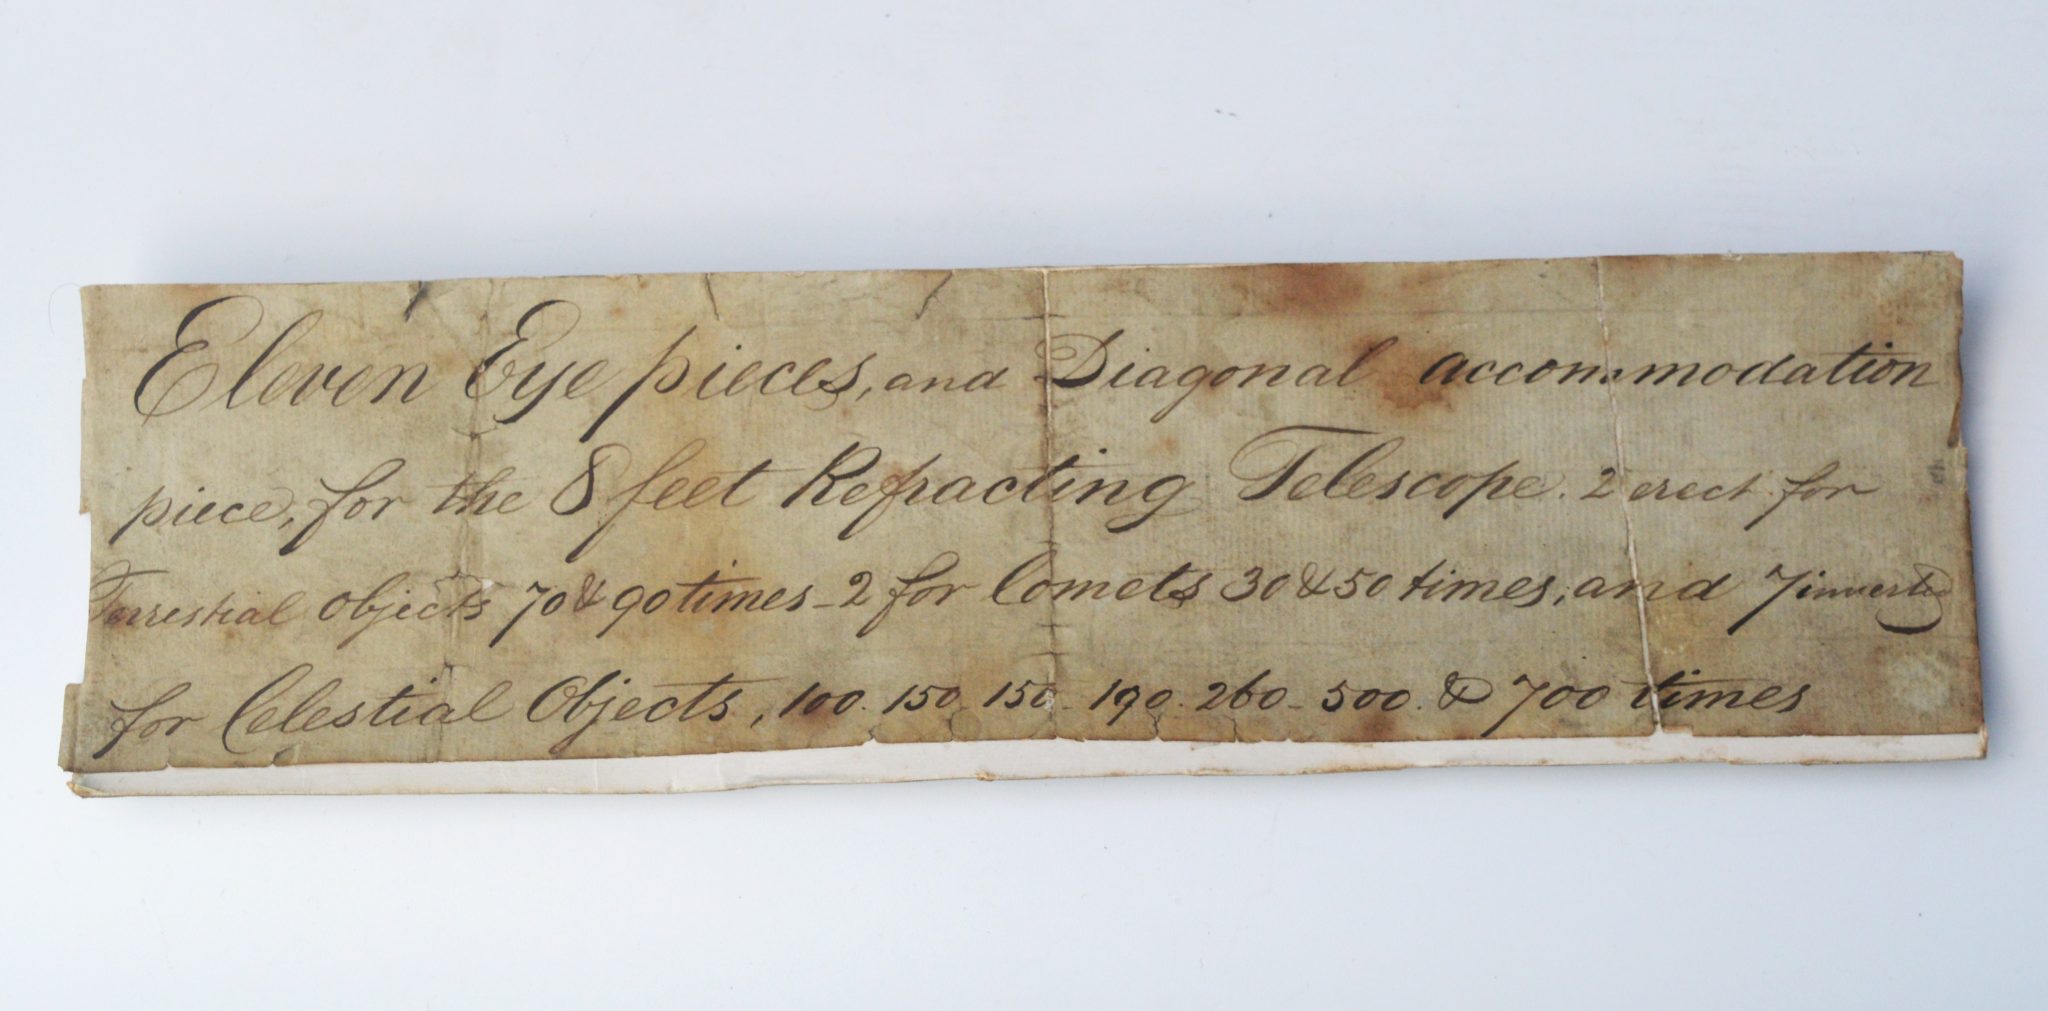 Eleven Eye pieces, and Diagonal accommodation
piece, for the 8 feet Refracting Telescope. 2 erect for
Terrestial objects 70 & 90 times - 2 for Comets 30 & 50 times, and 7 inverted
for Celestial Objects, 100. 150. 150. 190. 260 - 500. & 700 times